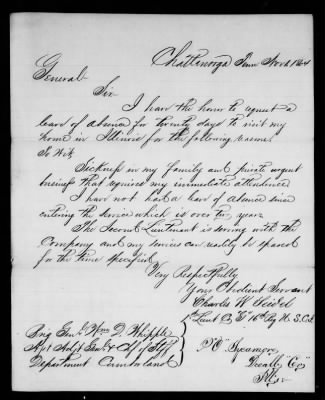 Chattanooga Tenn Nov 1 1864
General
Sir
I have the honor to request a
leave of absence for twenty days to visit my
home in Illinois for the following reasons.
To Wit,
Sickness in my family and private urgent
business that requires my immediate attendance.
I have not had a leave of absence since
entering the service which is over two years
The Second Lieutenant is serving with the
Company and my services can readily be spared
for the time specified
Very Respectfully
Your Obedient Servant
Charles W.
1st Lieut Co 16th Reg U.S.C.I.
Brig Genl Wm D Whipple
Asst Adjt Genl & Chf of Staff
Department Cumberland
P.O. Sycamore
"Co"
Ills